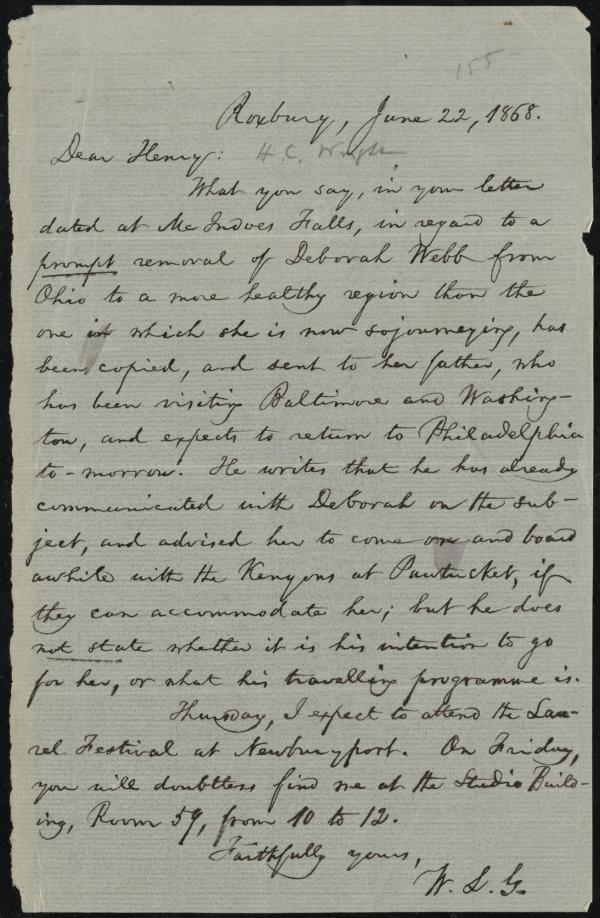 155
Roxbury, June 22, 1868.
Dear Henry: H. C. Wright
What you say, in your letter
dated at Mc Indoes Falls, in regard to a
prompt removal of Deborah Webb from
Ohio to a more healthy region than the
one in which she is now sojourneying, has
been copied, and sent to her father, who
has been visiting Baltimore and Washing-
ton, and expects to return to Philadelphia
to-morrow. He writes that he has already
communicated with Deborah on the sub-
ject, and advised her to come on and board
awhile with the Kenyons at Pawtucket, if
they can accommodate her; but he does
not state whether it is his intention to go
for her, or what his travelling programme is.
Thursday, I expect to attend the Lau-
rel Festival at Newburyport. On Friday,
you will doubtless find me at the Studio Build-
ing, Room 59, from 10 to 12.
Faithfully yours,
W. L. G.